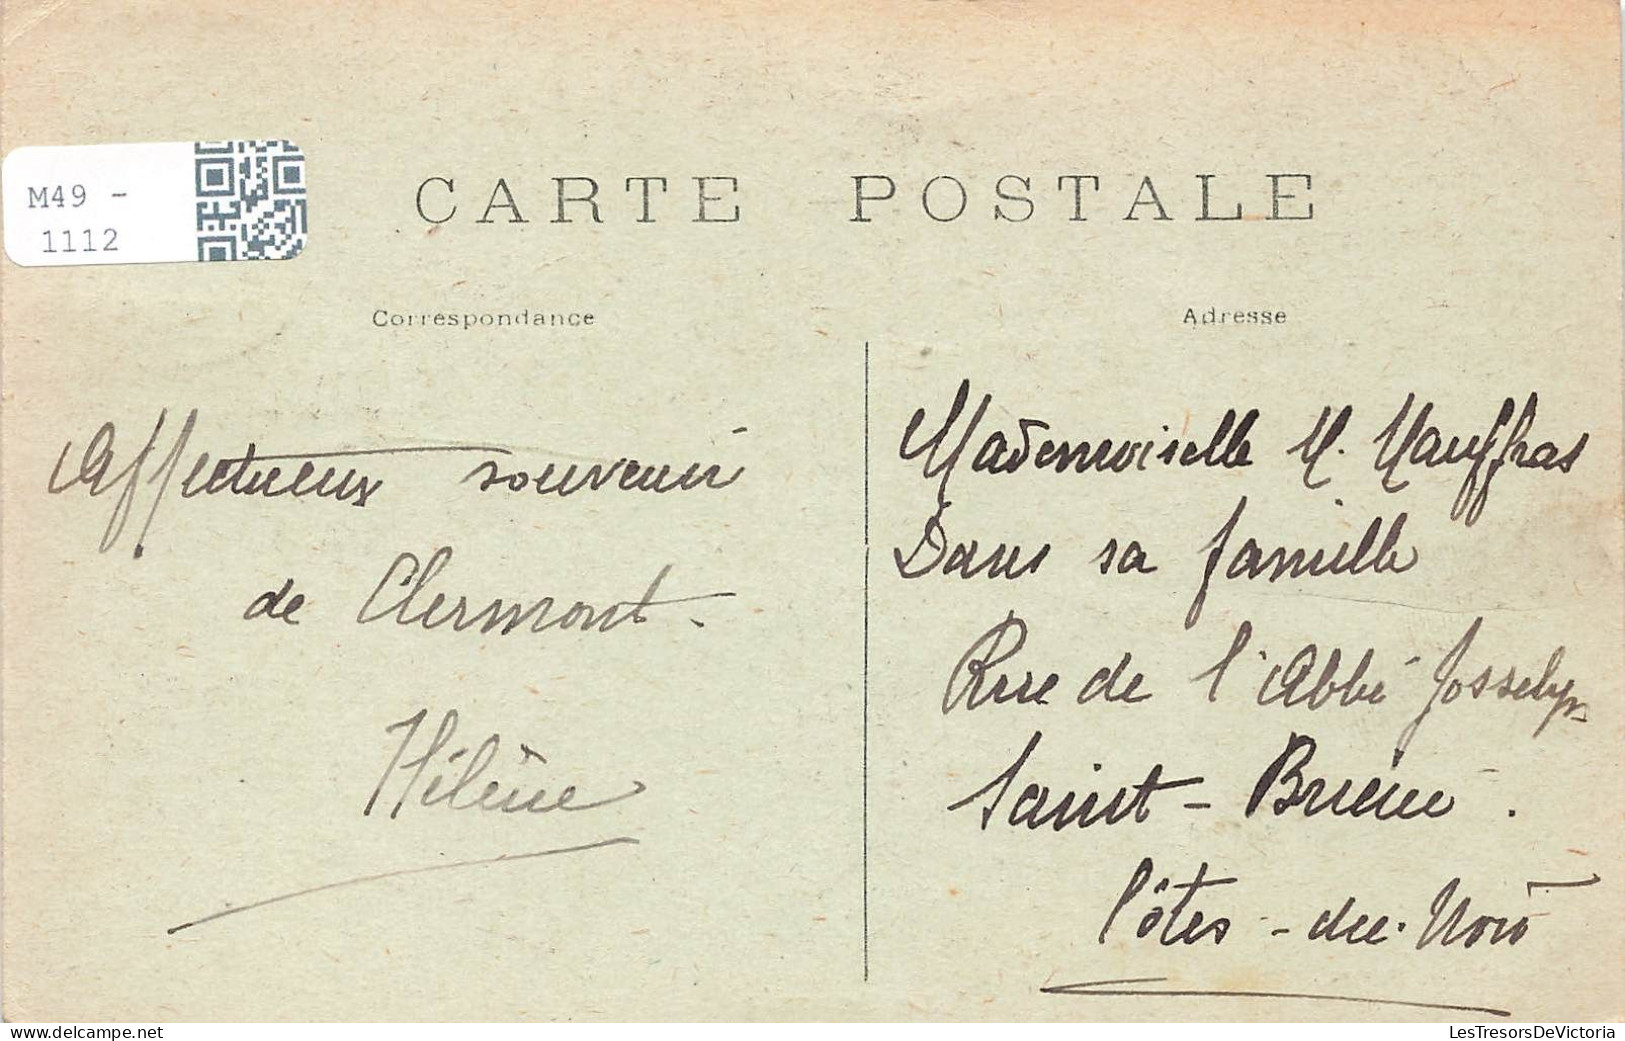 M49 -
1112
CARTE POSTALE
Correspondance
Adresse
Affectueux souvenir
de Clermont.
Hélène
Mademoiselle M. Mauffras
Dans sa famille
Rue de l'Abbé Josselyn
Saint-Brieuc.
Côtes-du-Nord
LesTresorsDeVictoria
delcampe.net